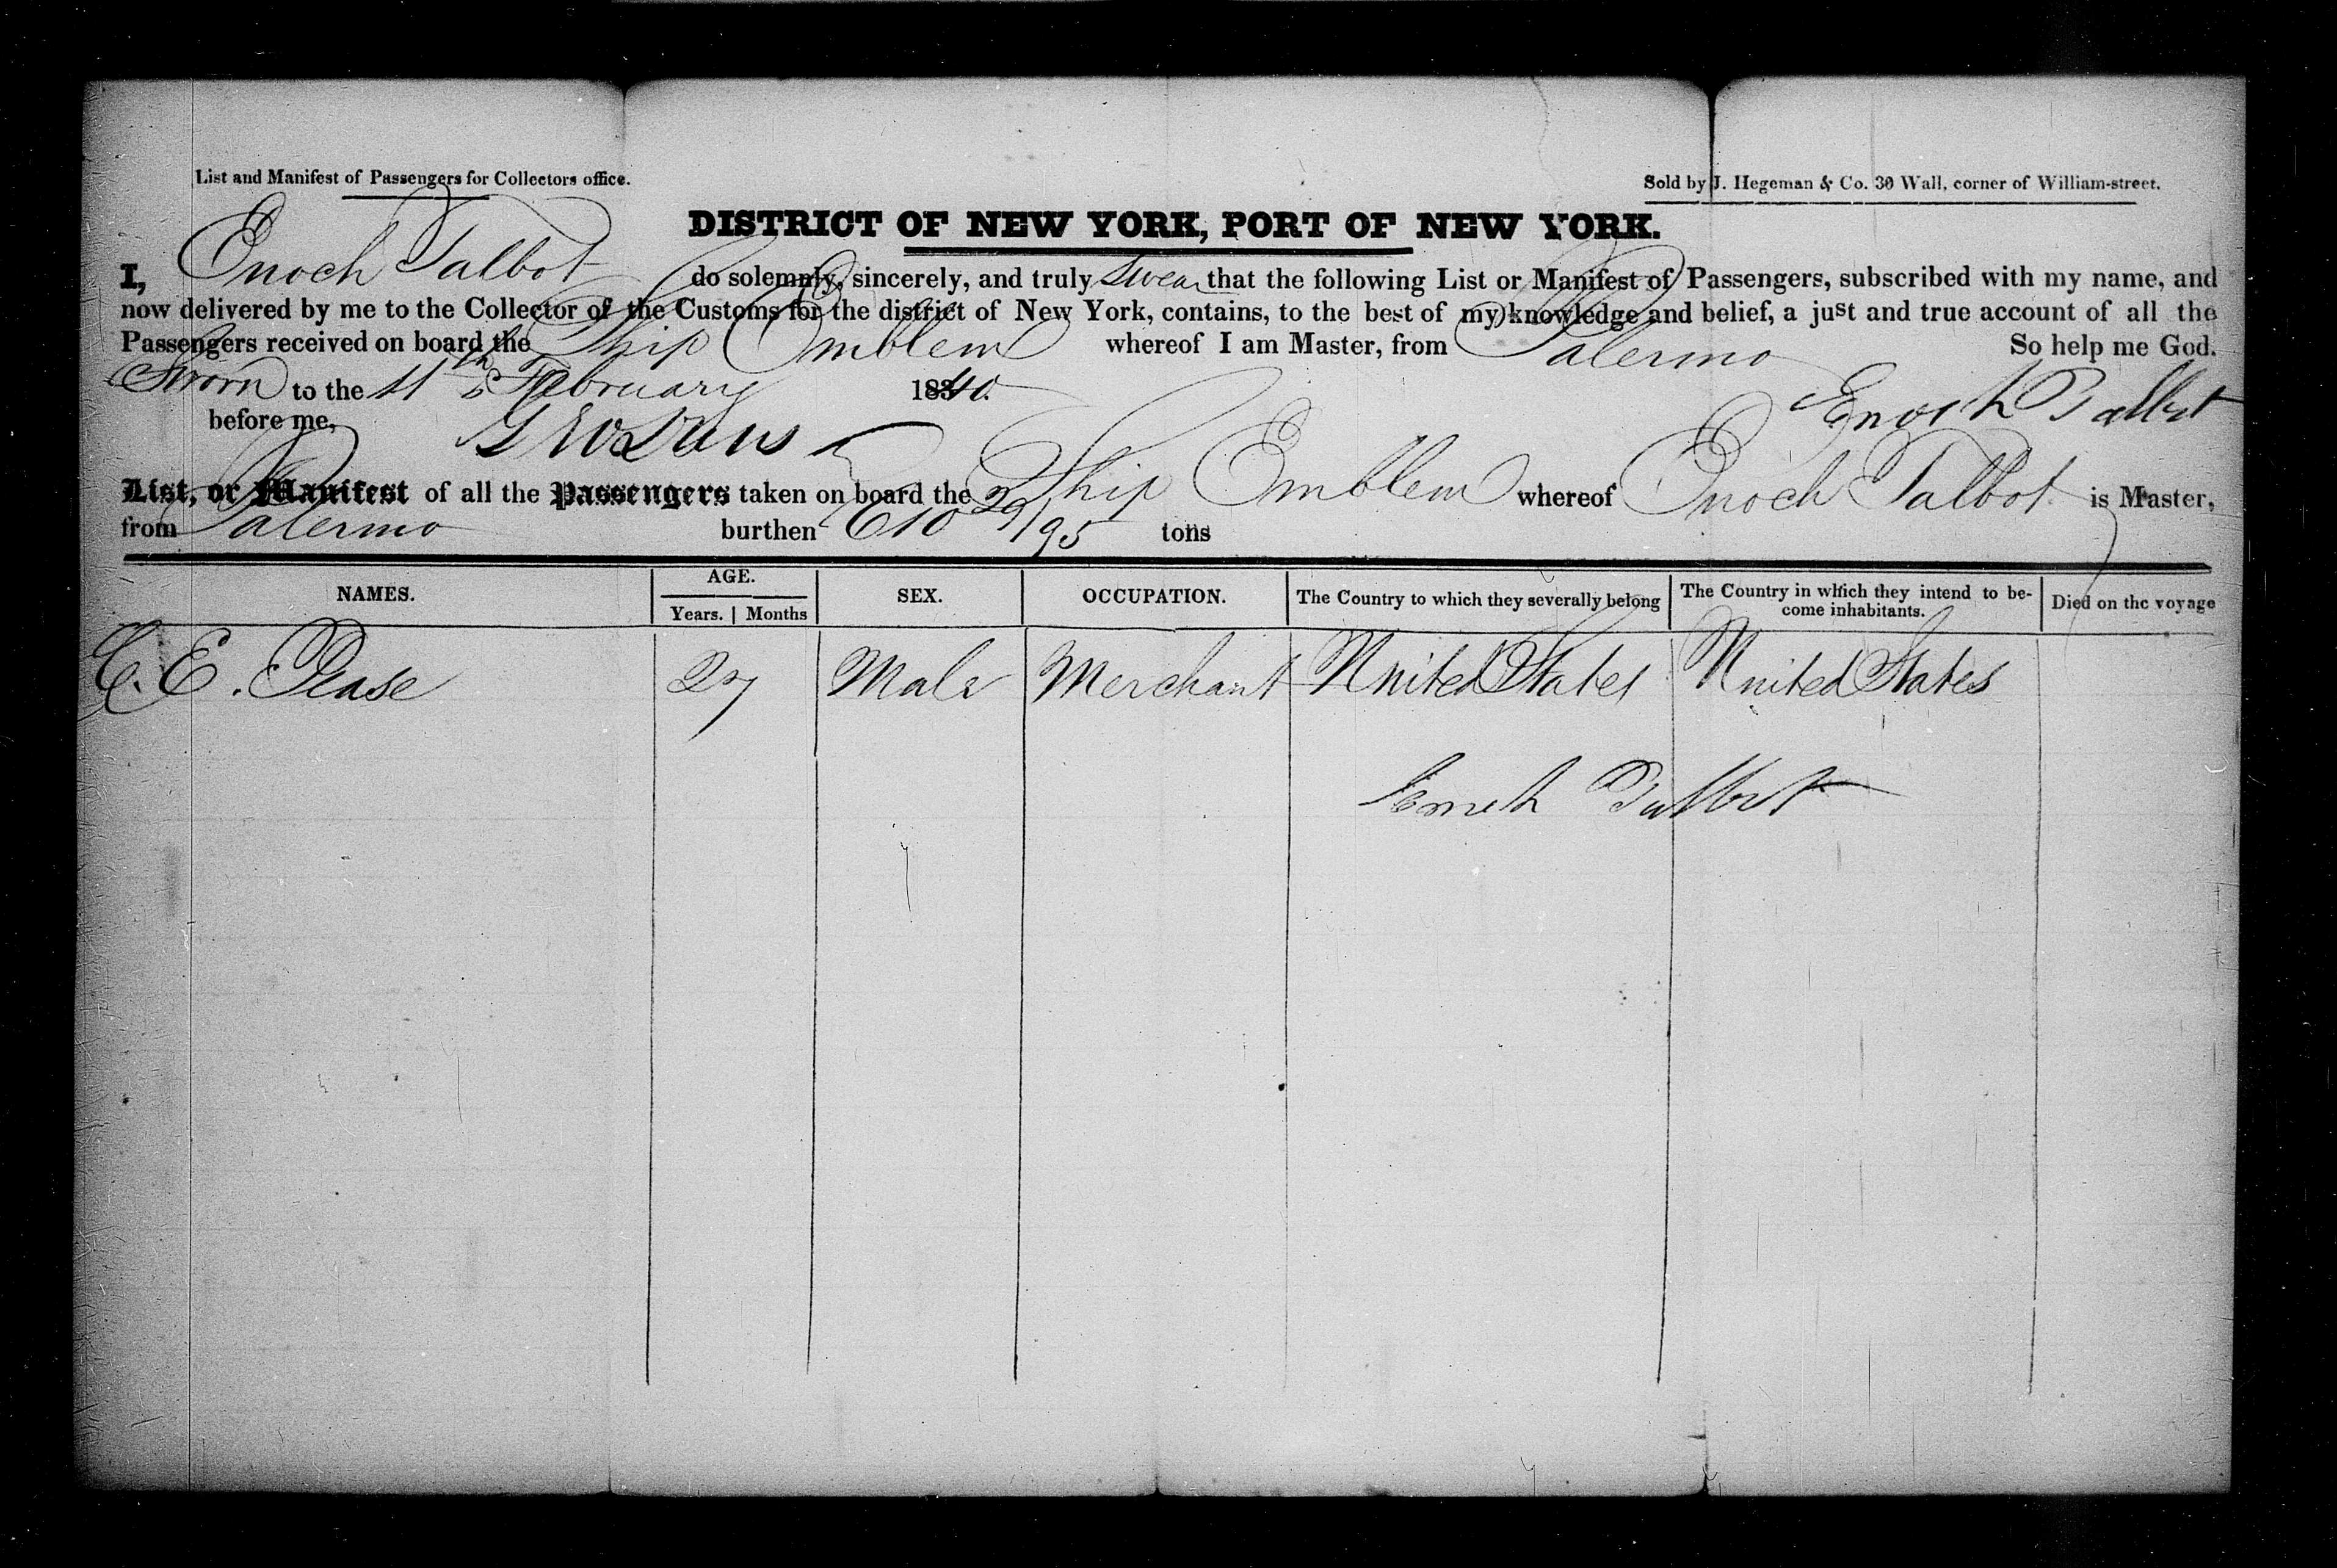 List and Manifest of Passengers for Collectors office.
Sold by J. Hegeman & Co. 30 Wall, corner of William-street.
DISTRICT OF NEW YORK, PORT OF NEW YORK.
I, Enoch Talbot do solemnly, sincerely, and truly swear that the following List or Manifest of Passengers, subscribed with my name, and
now delivered by me to the Collector of the Customs for the district of New York, contains, to the best of my knowledge and belief, a just and true account of all the
Passengers received on board the Ship Emblem whereof I am Master, from Palermo So help me God.
Sworn to the 11th February 1840.
Enoch Talbot
before me,
List, or Manifest of all the Passengers taken on board the Ship Emblem whereof Enoch Talbot is Master,
from Palermo burthen 610 29/95 tons
NAMES. AGE. SEX. OCCUPATION. The Country to which they severally belong The Country in which they intend to be-
come inhabitants. Died on the voyage
Years. Months
C. E. Pease 27 Male Merchant United States United States
Enoch Talbot